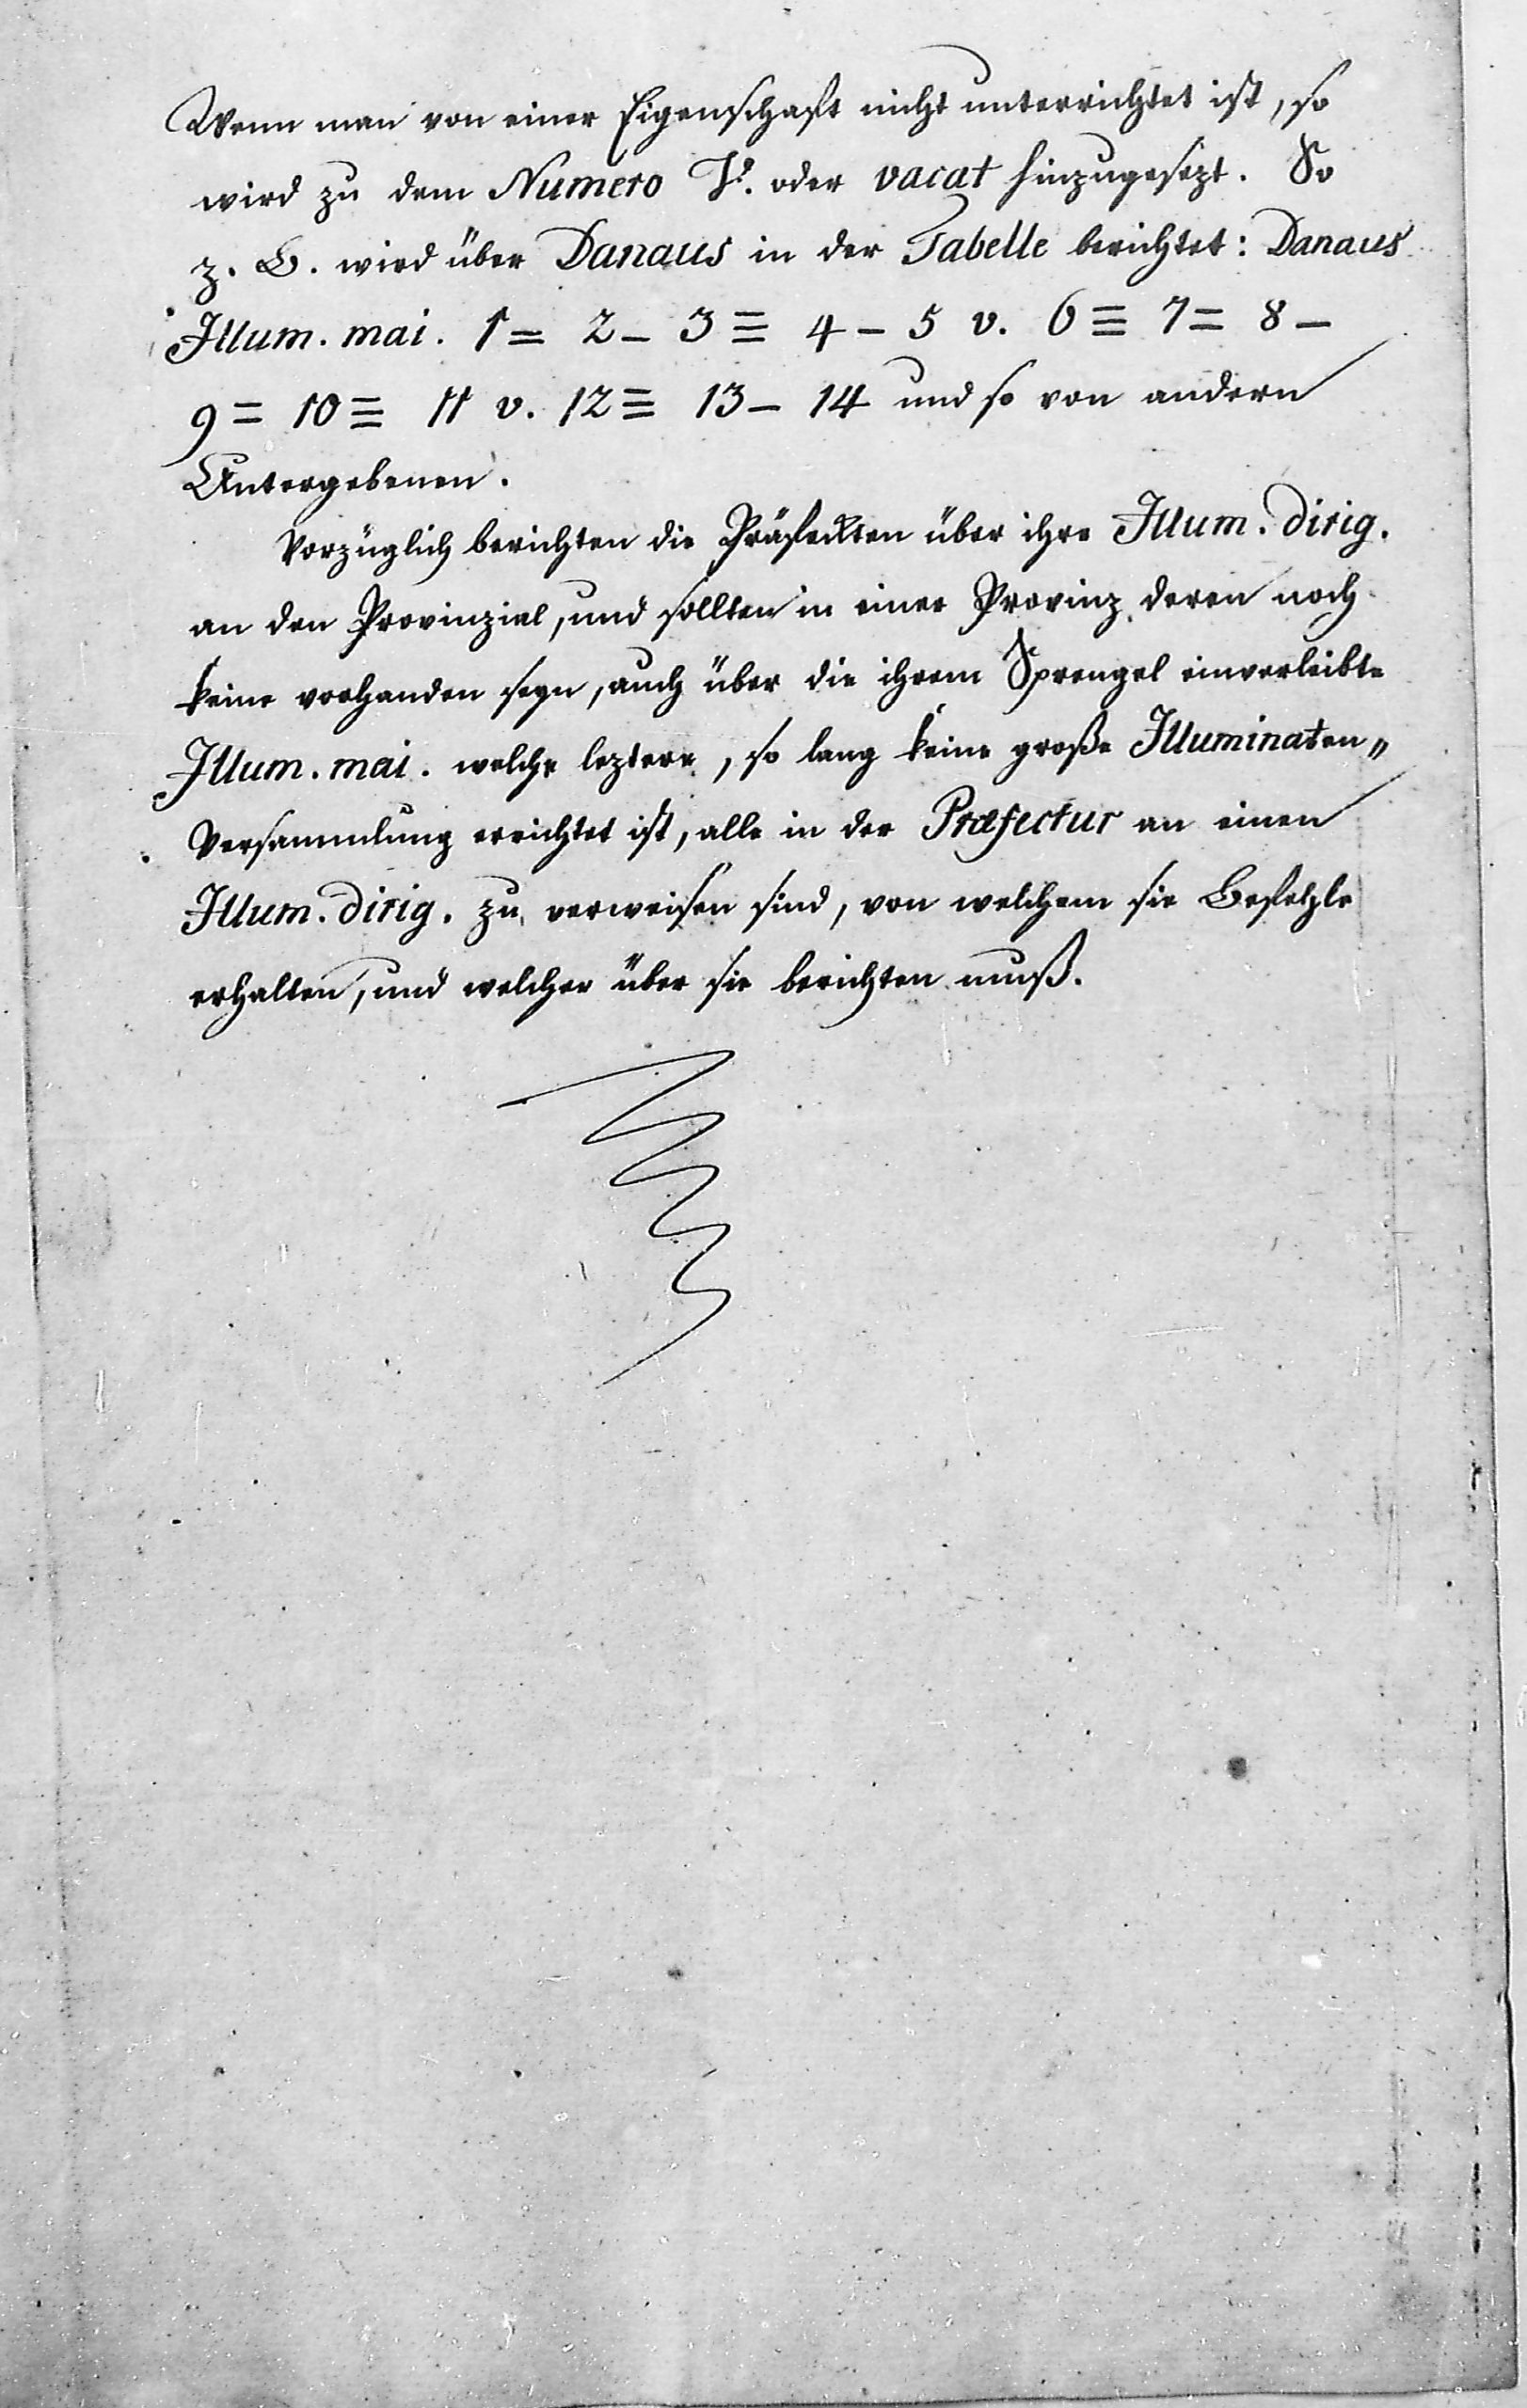 Wenn man von einer Eigenschaft nicht unterrichtet ist, so
wird zu dem Numero V. oder vacat hinzugesezt. So
z. B. wird über Danaus in der Tabelle berichtet: Danaus
Illum. mai. 1 = 2 – 3 ≡ 4 – 5 v. 6 ≡ 7 = 8 –
9 = 10 ≡ 11 v. 12 ≡ 13 – 14 und so von andern
Untergebenen.
Vorzüglich berichten die Präfeckten über ihre Illum. dirig.
an den Provinzial, und sollten in einer Provinz deren noch
keine vorhanden seyn, auch über die ihrem Sprengel einverleibte
Illum. mai. welche leztere, so lang keine große Illuminaten„
Versammlung errichtet ist, alle in der Præfectur an einen
Illum. dirig. zu verweisen sind, von welchem sie Befehle
erhalten, und welcher über sie berichten muß.